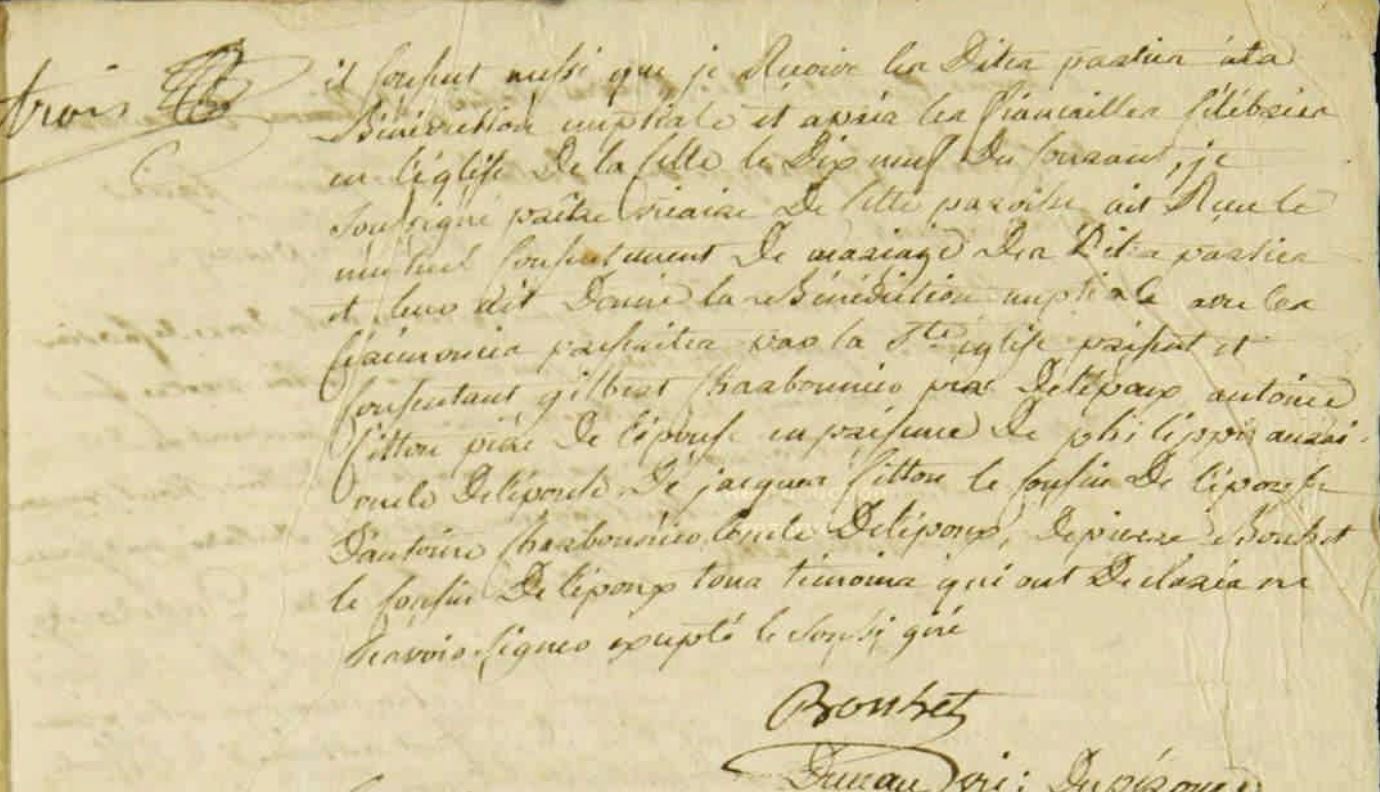 trois
il consent aussi que je Recoive les Dites parties à la
Bénédiction nuptiale et après les fiancailles célébrées
en l'église De la celle le Dix neuf Du courant, je
soussigné prêtre vicaire De cette paroisse ait Recu le
mutuel consentement De mariage Des Dites parties
et leur ait Donné la Bénédiction nuptiale avec les
cérémonies prescrites par la Ste église présent et
consentant gilbert charbonnier père De l'époux antoine
litton père De l'épouse en présence De philippe
oncle De l'épouse De jacques litton le cousin De l'épouse
D'antoine charbonnier l'oncle De l'époux, De pierre Bouchet
le cousin De l'époux tous témoins qui ont Declarés ne
scavoir signer excepté le soussigné
Bouchet